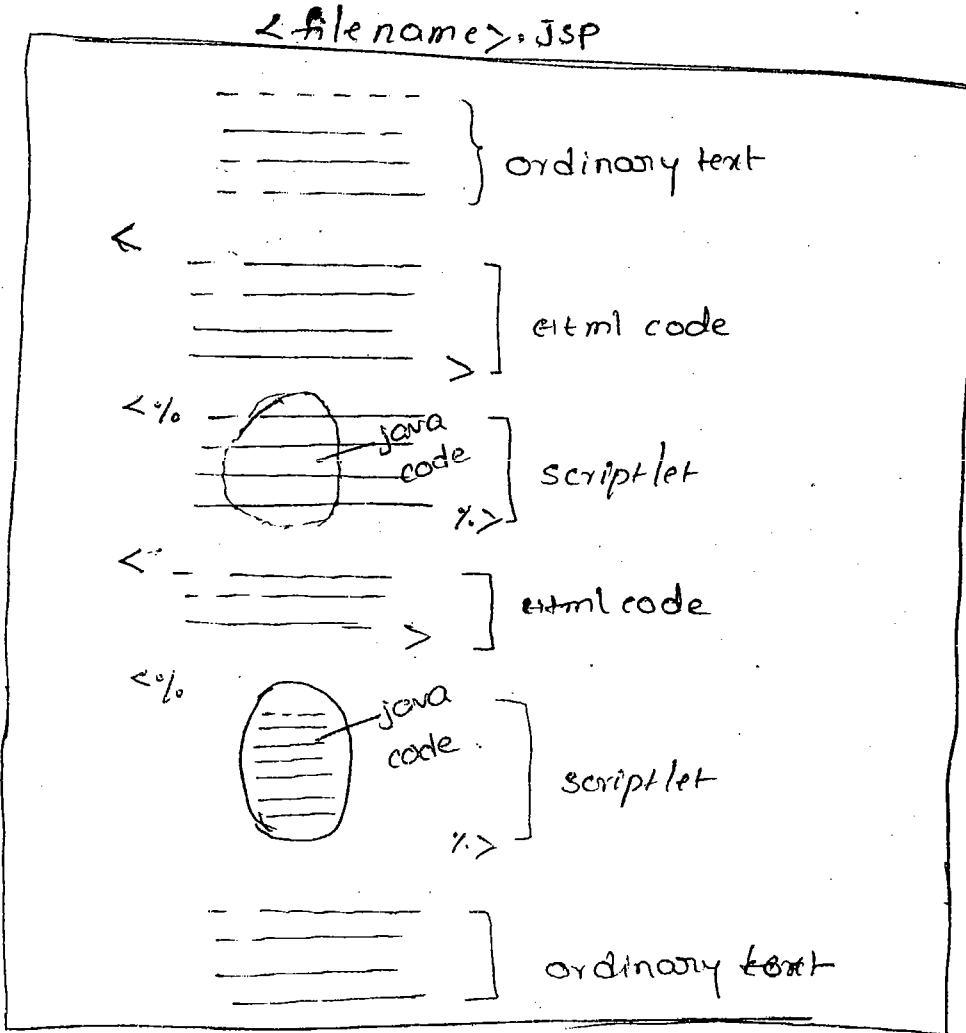 <filename>.jsp
ordinary text
<
Html code
>
<%
java
code
scriptlet
%>
<
Html code
>
<%
java
code
scriptlet
%>
ordinary text